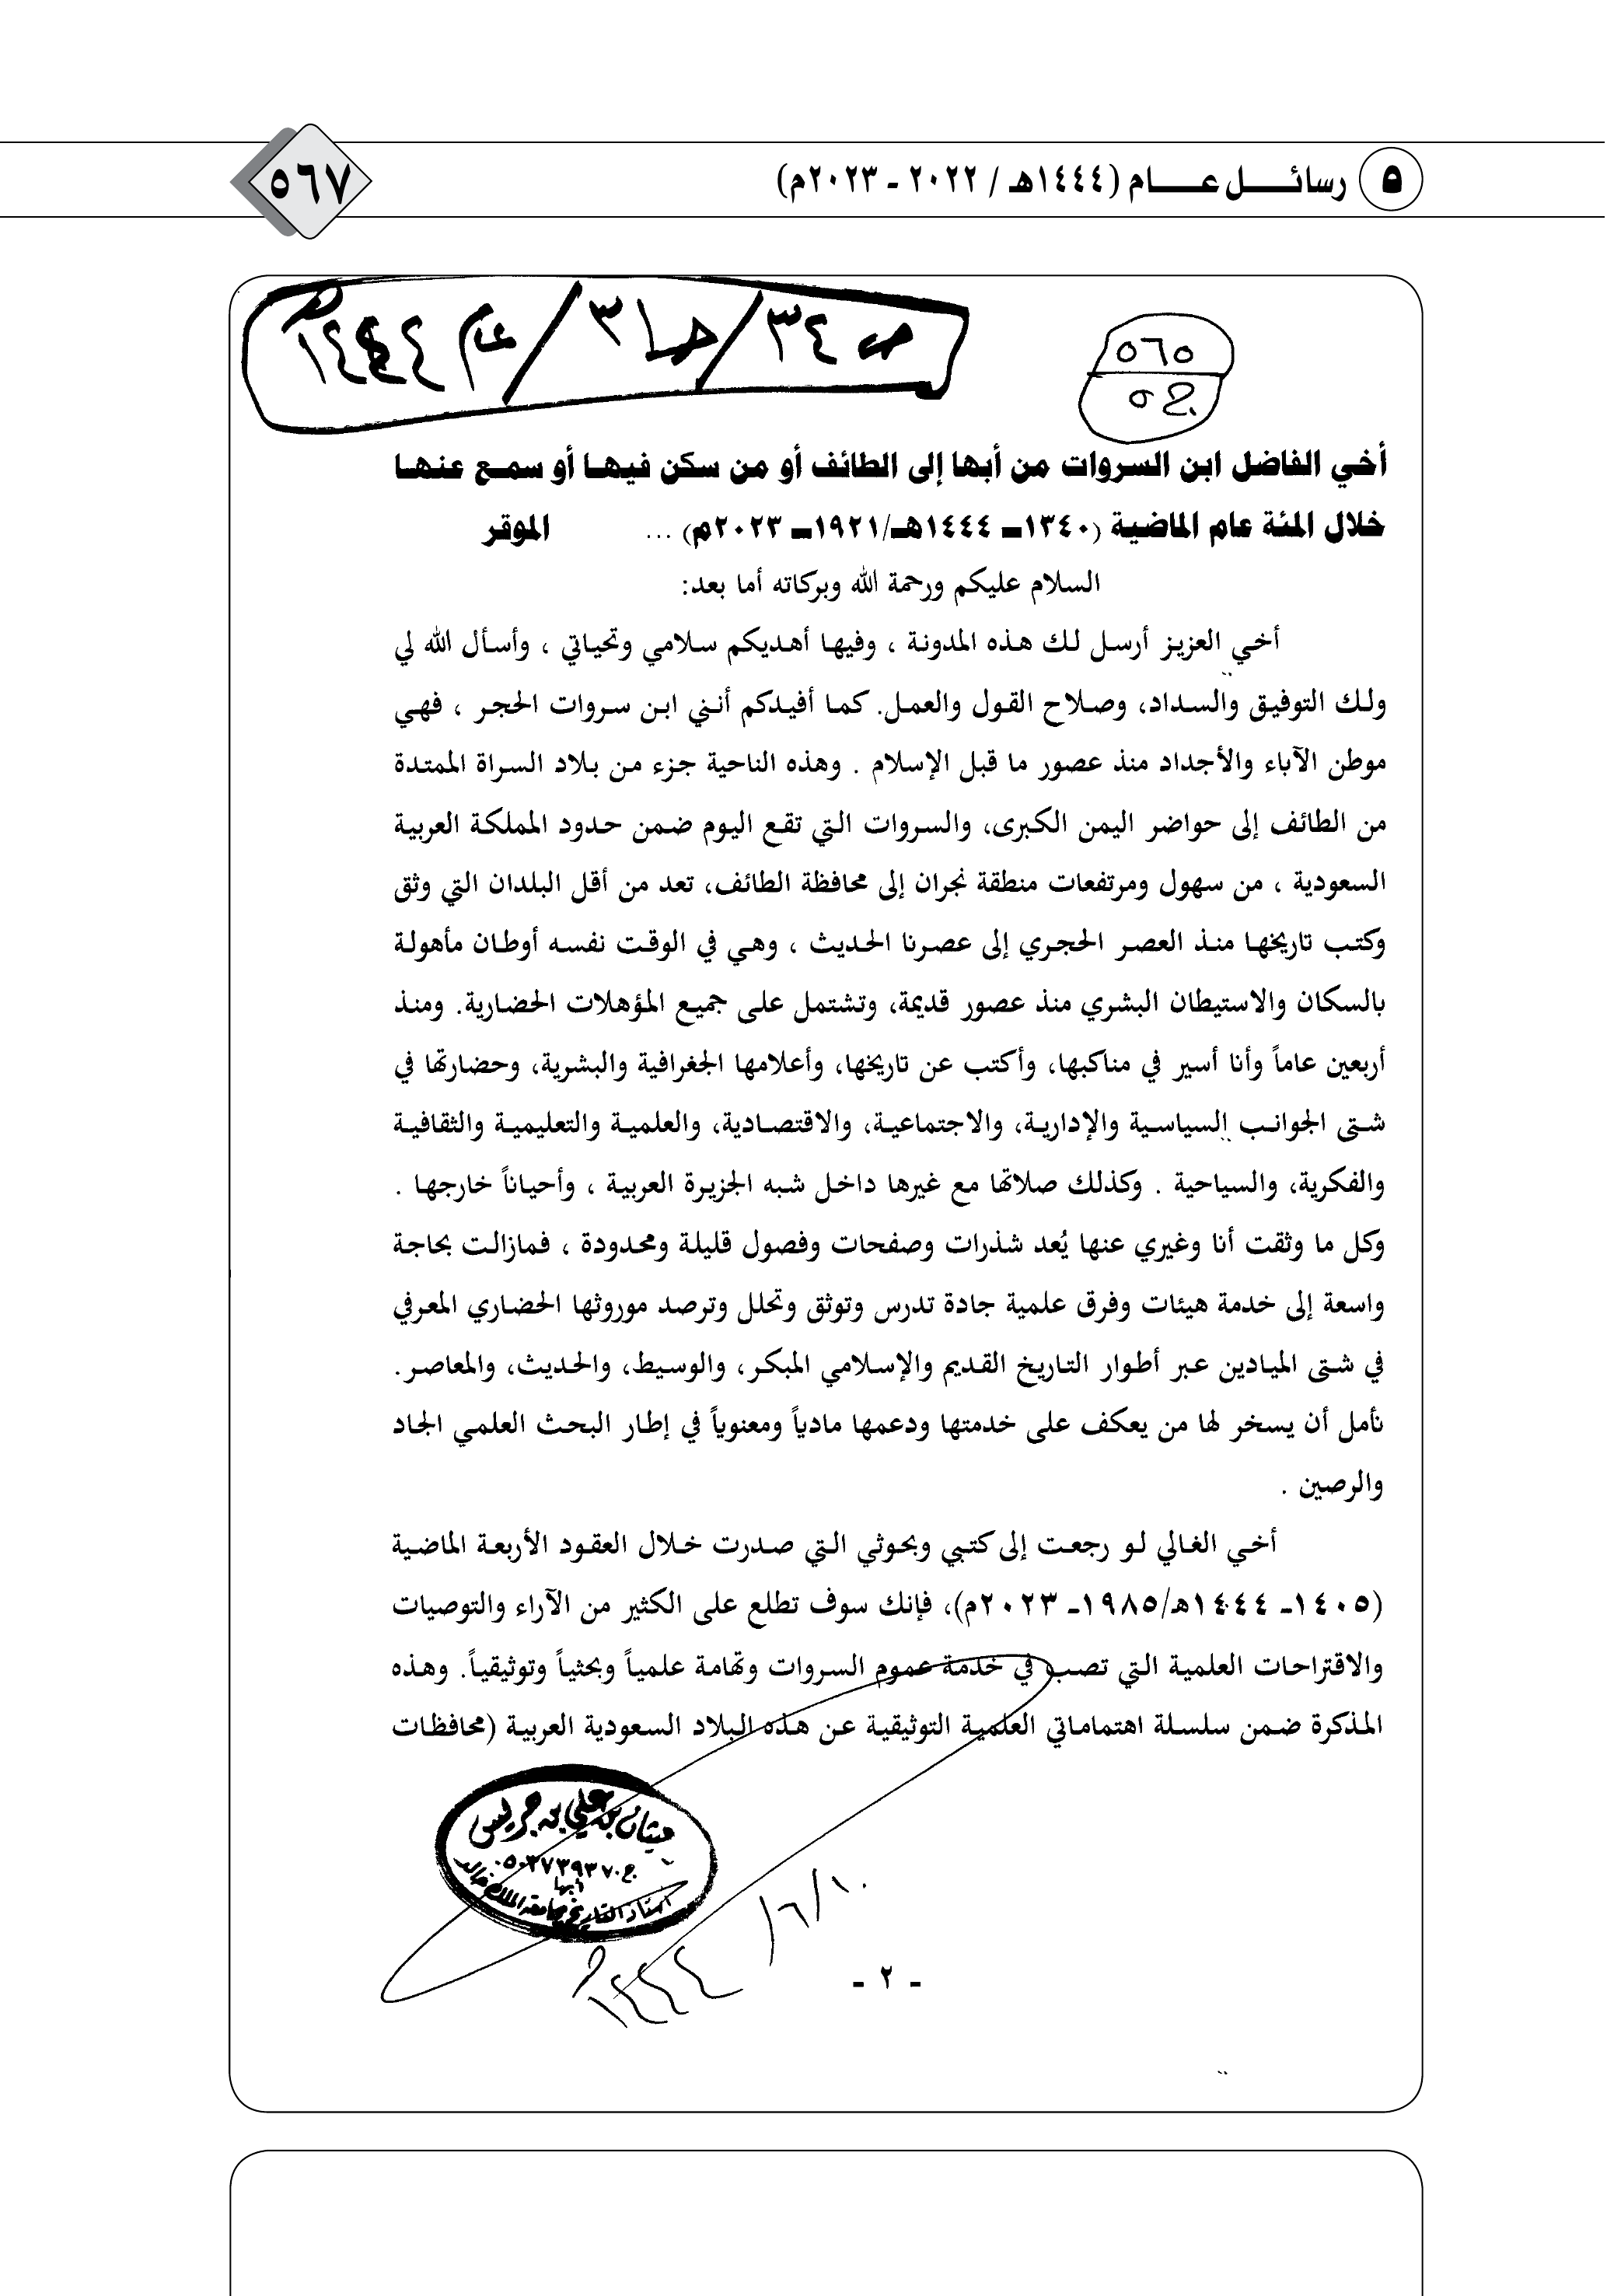 ٥ رسائل عام (١٤٤٤هـ / ٢٠٢٢ ـ ٢٠٢٣م)
٥٦٧
ص ٣٤ / جـ٣١ / عام ١٤٤٤هـ
٥٦٥
أخي الفاضل ابن السروات من أبها إلى الطائف أو من سكن فيها أو سمع عنها
خلال المئة عام الماضية (١٣٤٠ـ ١٤٤٤هـ/١٩٢١ـ ٢٠٢٣م) ... الموقر
السلام عليكم ورحمة الله وبركاته أما بعد:
أخي العزيز أرسل لك هذه المدونة ، وفيها أهديكم سلامي وتحياتي ، وأسأل الله لي
ولك التوفيق والسداد، وصلاح القول والعمل. كما أفيدكم أنني ابن سروات الحجر ، فهي
موطن الآباء والأجداد منذ عصور ما قبل الإسلام . وهذه الناحية جزء من بلاد السراة الممتدة
من الطائف إلى حواضر اليمن الكبرى، والسروات التي تقع اليوم ضمن حدود المملكة العربية
السعودية ، من سهول ومرتفعات منطقة نجران إلى محافظة الطائف، تعد من أقل البلدان التي وثق
وكتب تاريخها منذ العصر الحجري إلى عصرنا الحديث ، وهي في الوقت نفسه أوطان مأهولة
بالسكان والاستيطان البشري منذ عصور قديمة، وتشتمل على جميع المؤهلات الحضارية. ومنذ
أربعين عاماً وأنا أسير في مناكبها، وأكتب عن تاريخها، وأعلامها الجغرافية والبشرية، وحضارتها في
شتى الجوانب السياسية والإدارية، والاجتماعية، والاقتصادية، والعلمية والتعليمية والثقافية
والفكرية، والسياحية . وكذلك صلاتها مع غيرها داخل شبه الجزيرة العربية ، وأحياناً خارجها .
وكل ما وثقت أنا وغيري عنها يُعد شذرات وصفحات وفصول قليلة ومحدودة ، فمازالت بحاجة
واسعة إلى خدمة هيئات وفرق علمية جادة تدرس وتوثق وتحلل وترصد موروثها الحضاري المعرفي
في شتى الميادين عبر أطوار التاريخ القديم والإسلامي المبكر، والوسيط، والحديث، والمعاصر.
نأمل أن يسخر لها من يعكف على خدمتها ودعمها مادياً ومعنوياً في إطار البحث العلمي الجاد
والرصين .
أخي الغالي لو رجعت إلى كتبي وبحوثي التي صدرت خلال العقود الأربعة الماضية
(١٤٠٥ـ ١٤٤٤هـ/١٩٨٥ـ ٢٠٢٣م)، فإنك سوف تطلع على الكثير من الآراء والتوصيات
والاقتراحات العلمية التي تصب في خدمة عموم السروات وتهامة علمياً وبحثياً وتوثيقياً. وهذه
المذكرة ضمن سلسلة اهتماماتي العلمية التوثيقية عن هذه البلاد السعودية العربية (محافظات
بن علي بن جريس
ج٠٥٠٣٧٣٩٣٧٠
أبها
أستاذ التاريخ بجامعة الملك خالد
١٠/٦/١٤٤٤هـ
- ٢ -